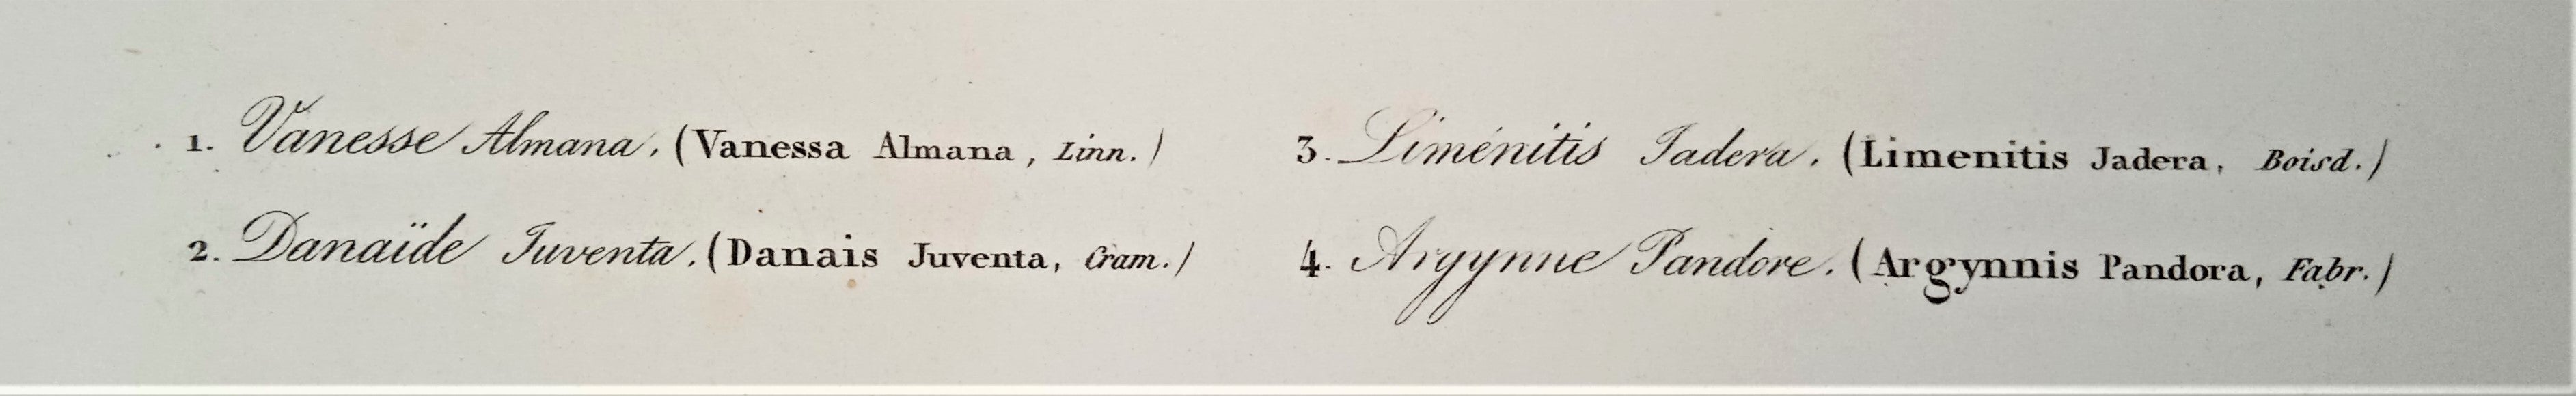 1. Vanesse Almana. (Vanessa Almana, Linn.)
2. Danaïde Juventa. (Danais Juventa, Cram.)
3. Liménitis Jadera. (Limenitis Jadera, Boisd.)
4. Argynne Pandore. (Argynnis Pandora, Fabr.)